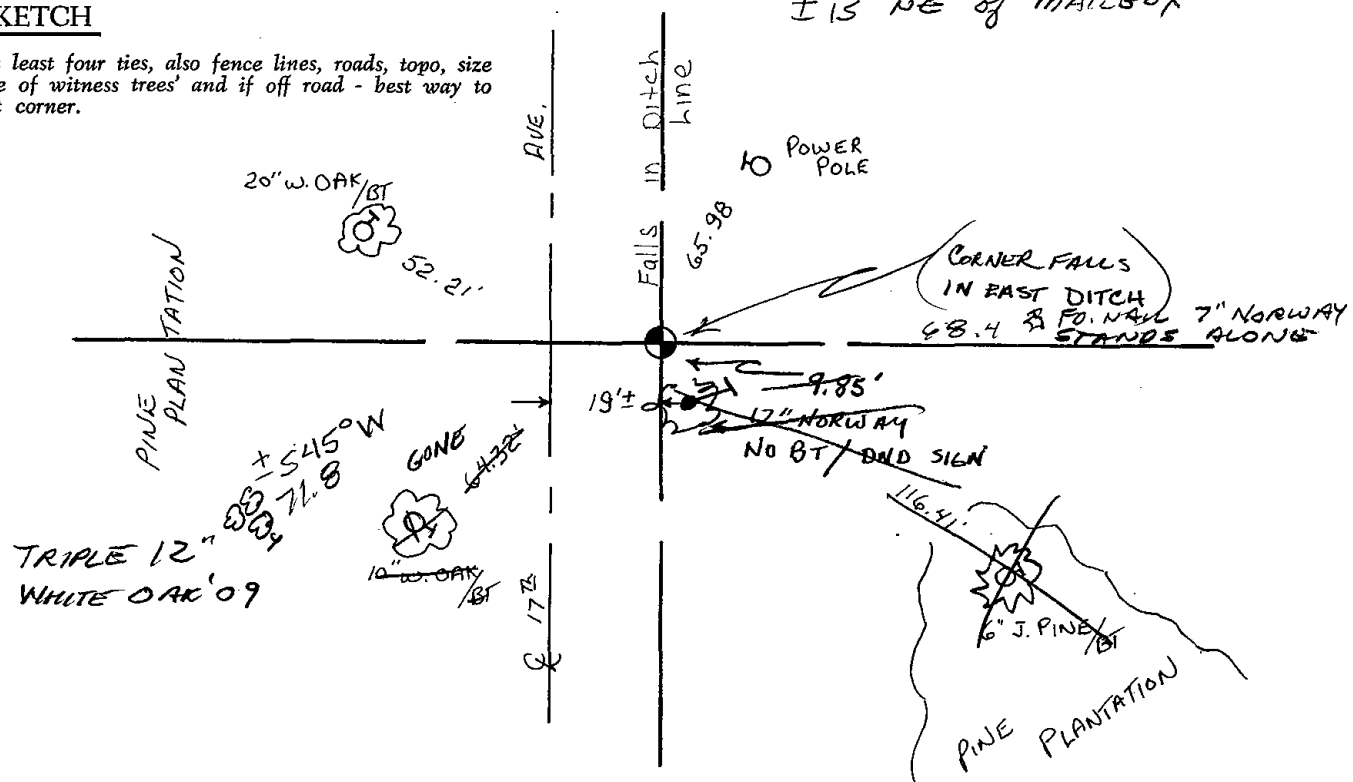 KETCH
± 15 NE of MAILBOX
least four ties, also fence lines, roads, topo, size
e of witness trees' and if off road - best way to
corner.
AVE.
Falls in Ditch
Line
POWER
POLE
65.98
20" W. OAK/BT
52.21'
PINE
PLANTATION
CORNER FALLS
IN EAST DITCH
68.4 & FO. NAIL 7" NORWAY
STANDS ALONE
19'±
9.85'
17" NORWAY
NO BT/DND SIGN
±S45°W
71.8
GONE
64.32'
TRIPLE 12"
WHITE OAK '09
10" W. OAK/BT
℄ 17TH
116.41'
6" J. PINE/BT
PINE PLANTATION